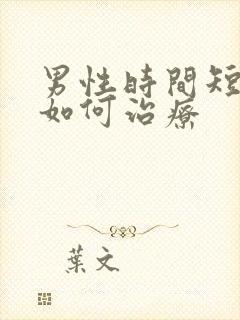 男性時間短
如何治療
葉文